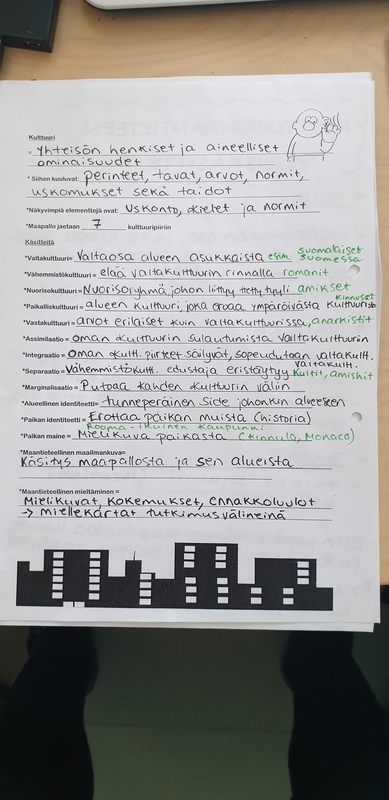 Kulttuuri
= Yhteisön henkiset ja aineelliset
ominaisuudet
* Siihen kuuluvat: perinteet, tavat, arvot, normit,
uskomukset sekä taidot
*Näkyvimpiä elementtejä ovat: uskonto, kielet ja normit
*Maapallo jaetaan 7 kulttuuripiiriin
Käsitteitä
*Valtakulttuuri= Valtaosa alueen asukkaista esim. suomalaiset suomessa
*Vähemmistökulttuuri= elää valtakulttuurin rinnalla romanit
*Nuorisokulttuuri= Nuorisoryhmä johon liittyy tietty tyyli amikset
*Paikalliskulttuuri= alueen kulttuuri, joka eroaa ympäröivästä kulttuurista kinnuset
*Vastakulttuuri= arvot erilaiset kuin valtakulttuurissa, anarkistit
*Assimilaatio= oman kulttuurin sulautumista valtakulttuuriin
*Integraatio= oman kultt. piirteet säilyvät, sopeudutaan valtakultt.
*Separaatio= Vähemmistökultt. edustaja eristäytyy valtakult. kultit, amishit
*Marginalisaatio= Putoaa kahden kulttuurin väliin
*Alueellinen identiteetti= tunneperäinen side johonkin alueeseen
*Paikan identiteetti= Erottaa paikan muista (historia)
Rooma - ikuinen kaupunki
*Paikan maine= Mielikuva paikasta (Kinnula, Monaco)
*Maantieteellinen maailmankuva=
Käsitys maapallosta ja sen alueista
*Maantieteellinen mieltäminen=
Mielikuvat, kokemukset, ennakkoluulot
→ miellekartat tutkimusvälineinä